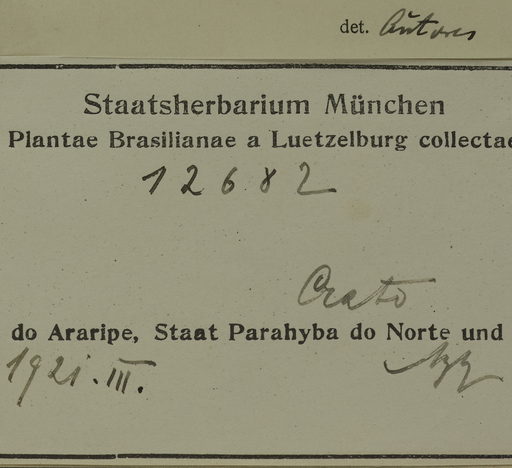 det. Autores
Staatsherbarium München
Plantae Brasilianae a Luetzelburg collectae
12682
Crato
do Araripe, Staat Parahyba do Norte und
1921. III.